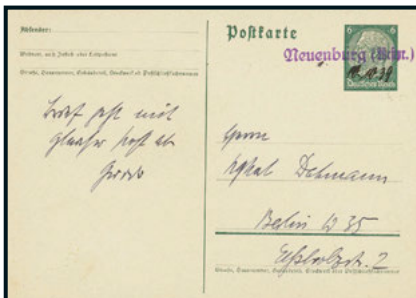 Absender:
Wohnort, auch Zustell- oder Leitpostamt
Straße, Hausnummer, Gebäudeteil, Stockwerk od. Postschließfachnummer
Brief geht mit
gleicher Post ab
Postkarte
6 6
Deutsches Reich
Neuenburg
Herrn
Dobmann
Berlin W 35
2
Straße, Hausnummer, Gebäudeteil, Stockwerk oder Postschließfachnummer